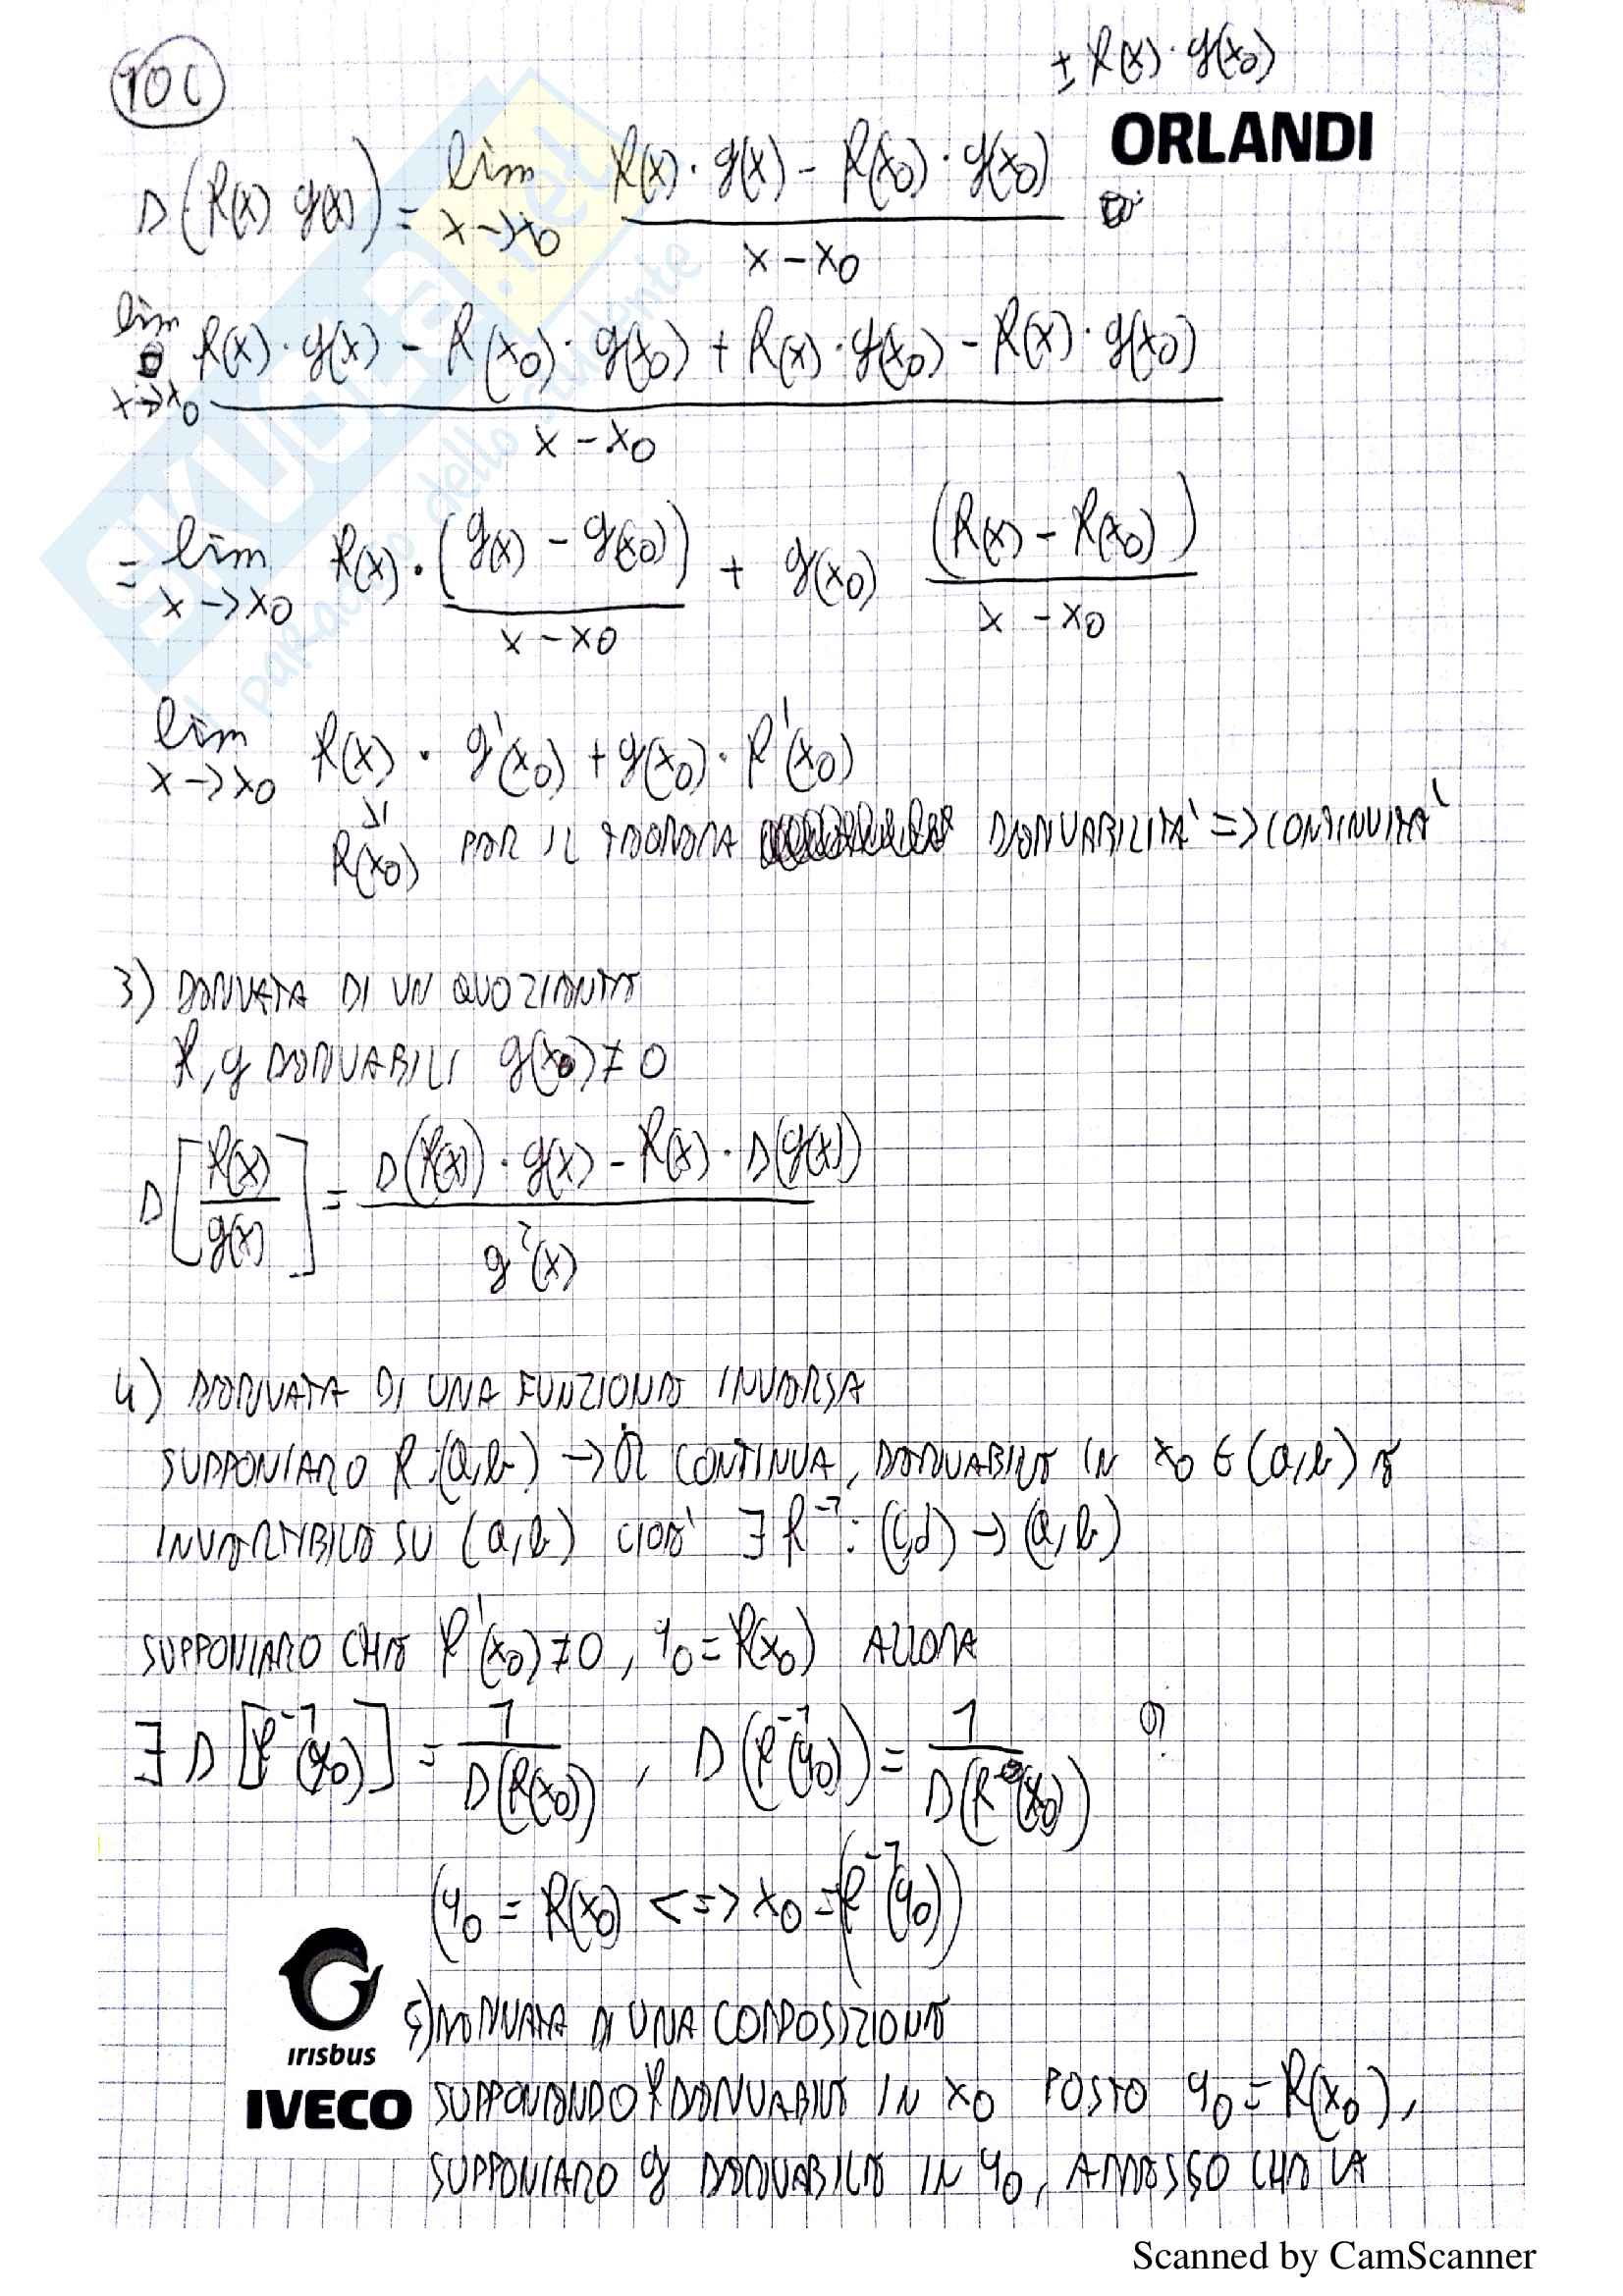 10C
± f(x)·g(x0)
ORLANDI
D(f(x) g(x)) = lim x→x0 (f(x)·g(x) − f(x0)·g(x0)) / (x−x0)
lim x→x0 (f(x)·g(x) − f(x0)·g(x0) + f(x)·g(x0) − f(x)·g(x0)) / (x−x0)
= lim x→x0 f(x)·(g(x) − g(x0)) / (x−x0) + g(x0) (f(x) − f(x0)) / (x−x0)
lim x→x0 f(x)·g'(x0) + g(x0)·f'(x0)
f(x0) PER IL TEOREMA DERIVABILITA' => CONTINUITA'
3) DERIVATA DI UN QUOZIENTE
f, g DERIVABILI g(x0) ≠ 0
D[f(x)/g(x)] = (D(f(x))·g(x) − f(x)·D(g(x))) / g²(x)
4) DERIVATA DI UNA FUNZIONE INVERSA
SUPPONIAMO f:(a,b) → R CONTINUA, DERIVABILE IN x0 ∈ (a,b) E
INVERTIBILE SU (a,b) CIOE' ∃ f⁻¹: (c,d) → (a,b)
SUPPONIAMO CHE f'(x0) ≠ 0, y0 = f(x0) ALLORA
∃ D[f⁻¹(y0)] = 1 / D(f(x0)) , D(f⁻¹(y0)) = 1 / D(f(x0)) ?
(y0 = f(x0) <=> x0 = f⁻¹(y0))
5) DERIVATA DI UNA COMPOSIZIONE
SUPPONENDO f DERIVABILE IN x0 POSTO y0 = f(x0),
SUPPONIAMO g DERIVABILE IN y0, AMMESSO CHE LA
irisbus
IVECO
SKUOLA.net
il paradiso dello studente
Scanned by CamScanner